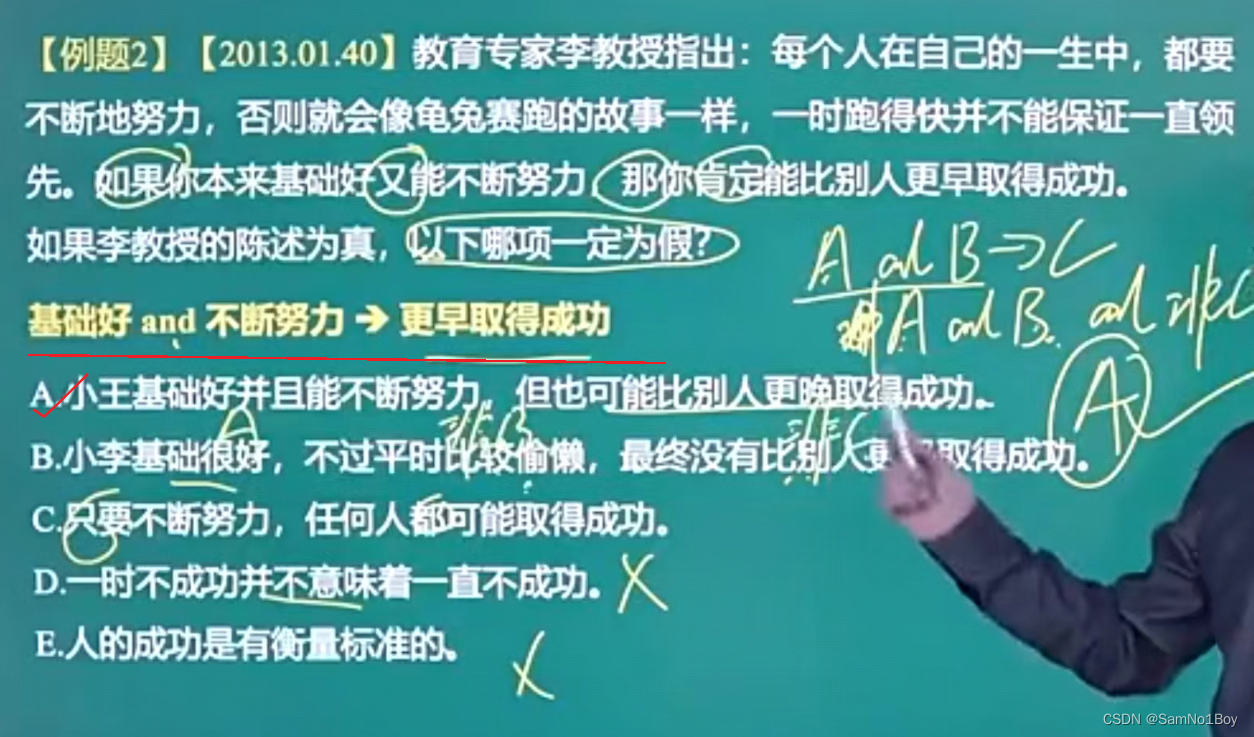 【例题2】【2013.01.40】教育专家李教授指出：每个人在自己的一生中，都要
不断地努力，否则就会像龟兔赛跑的故事一样，一时跑得快并不能保证一直领
先。如果你本来基础好又能不断努力，那你肯定能比别人更早取得成功。
如果李教授的陈述为真，以下哪项一定为假？
A and B→C
基础好 and 不断努力 → 更早取得成功
A and B. and 非C
A.小王基础好并且能不断努力，但也可能比别人更晚取得成功。
A
A 非B 非C
B.小李基础很好，不过平时比较偷懒，最终没有比别人更早取得成功。
C.只要不断努力，任何人都可能取得成功。
D.一时不成功并不意味着一直不成功。
E.人的成功是有衡量标准的。
CSDN @SamNo1Boy